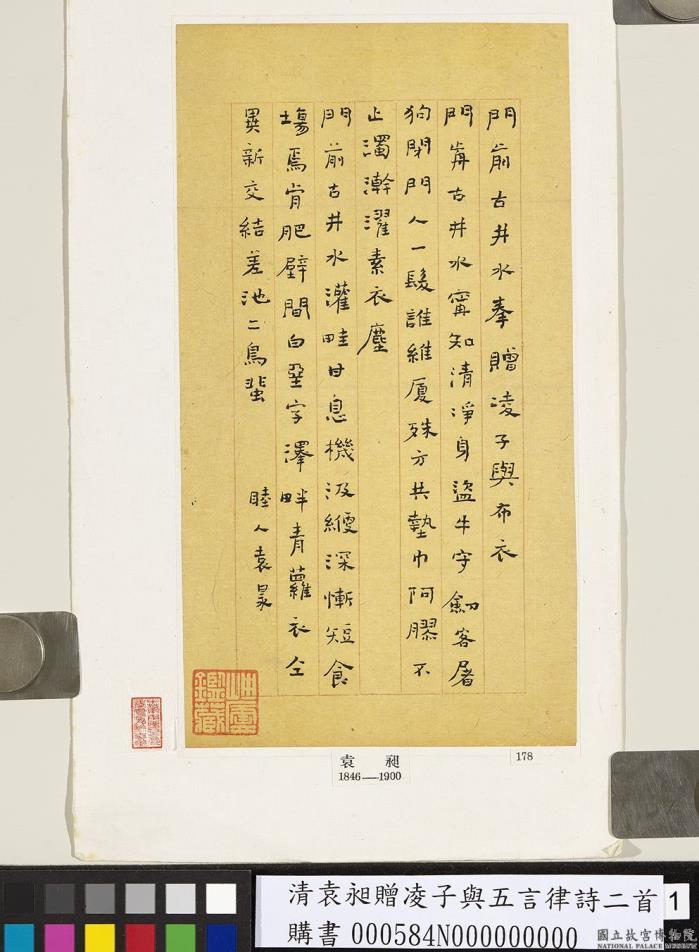 門前古井水奉贈凌子與布衣
門前古井水甯知清淨身盜牛守劒客屠
狗閉門人一髮誰維厦殊方共墊巾阿膠不
止濁澣濯素衣塵
門前古井水灌畦甘息機汲綆深慚短食
場焉肯肥壁間白堊字澤畔青蘿衣仝
異新交結差池二鳥蜚
睦人袁昶
岫廬
鑑藏
袁昶
1846—1900
178
清袁昶贈凌子與五言律詩二首
購書 000584N000000000
1
國立故宮博物院
NATIONAL PALACE